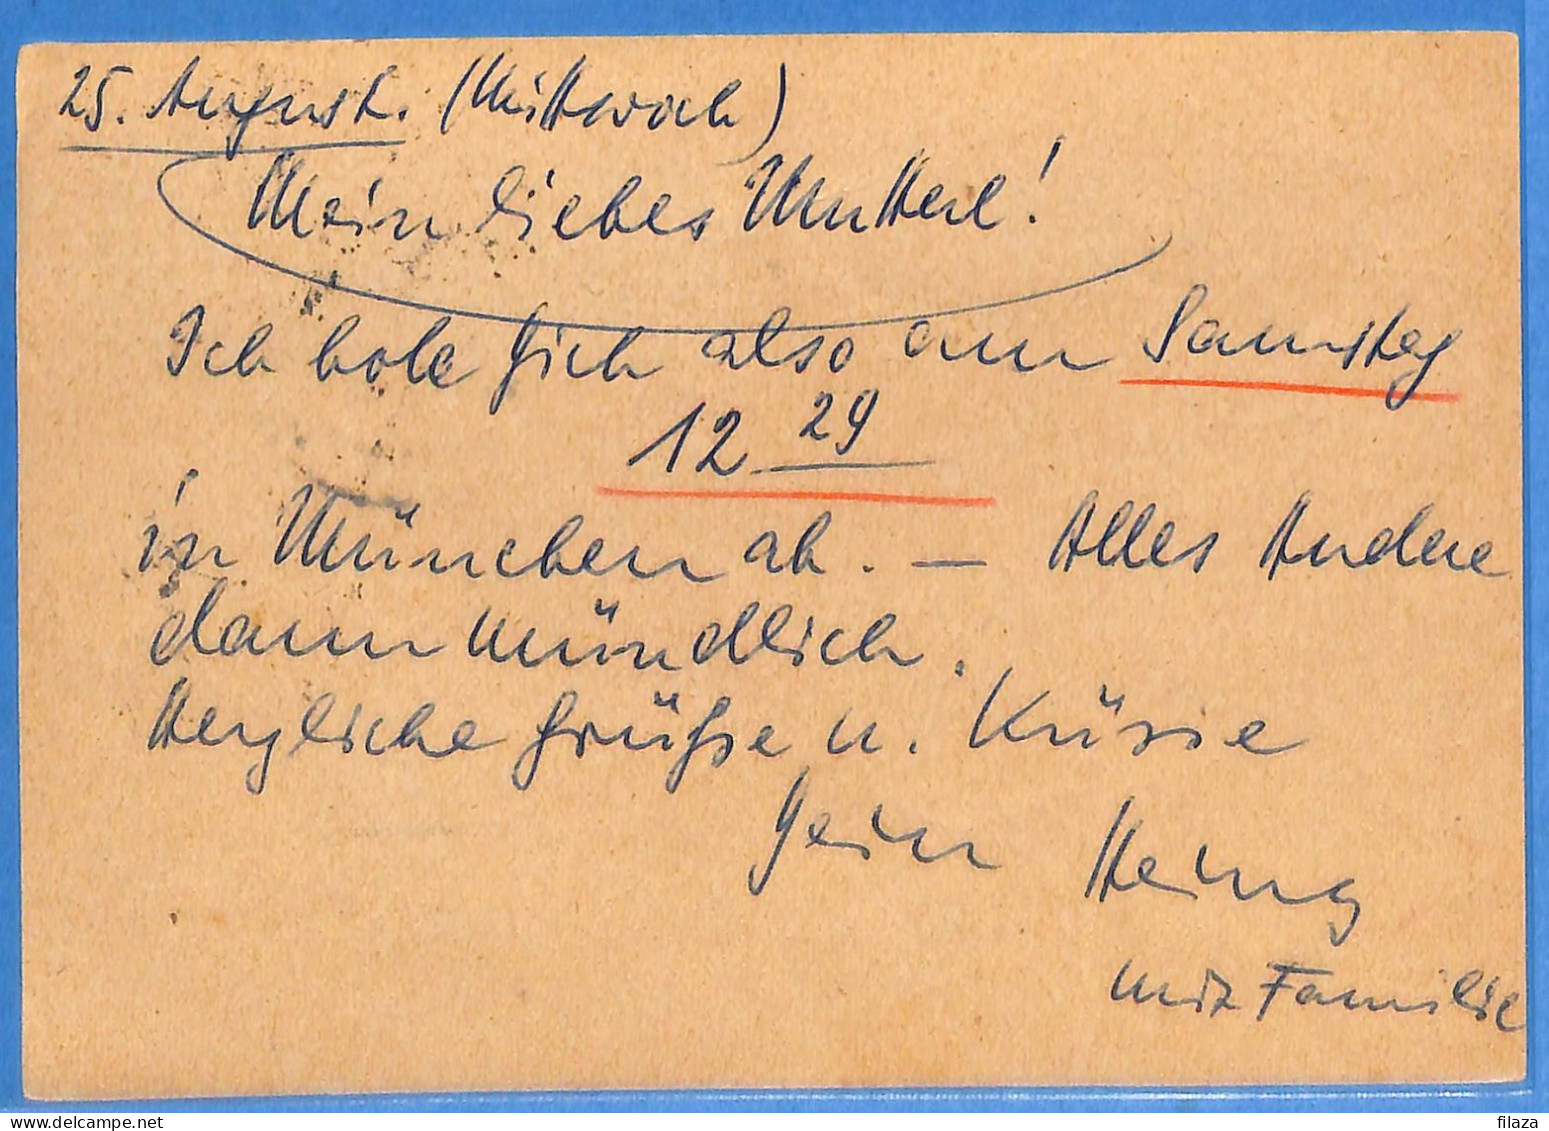 25. August. (Mittwoch)
Mein liebes Mutterl!
Ich hole Dich also am Samstag
12 29
in München ab. — Alles Andere
dann mündlich.
Herzliche Grüße u. Küsse
Dein Heinz
mit Familie
filaza